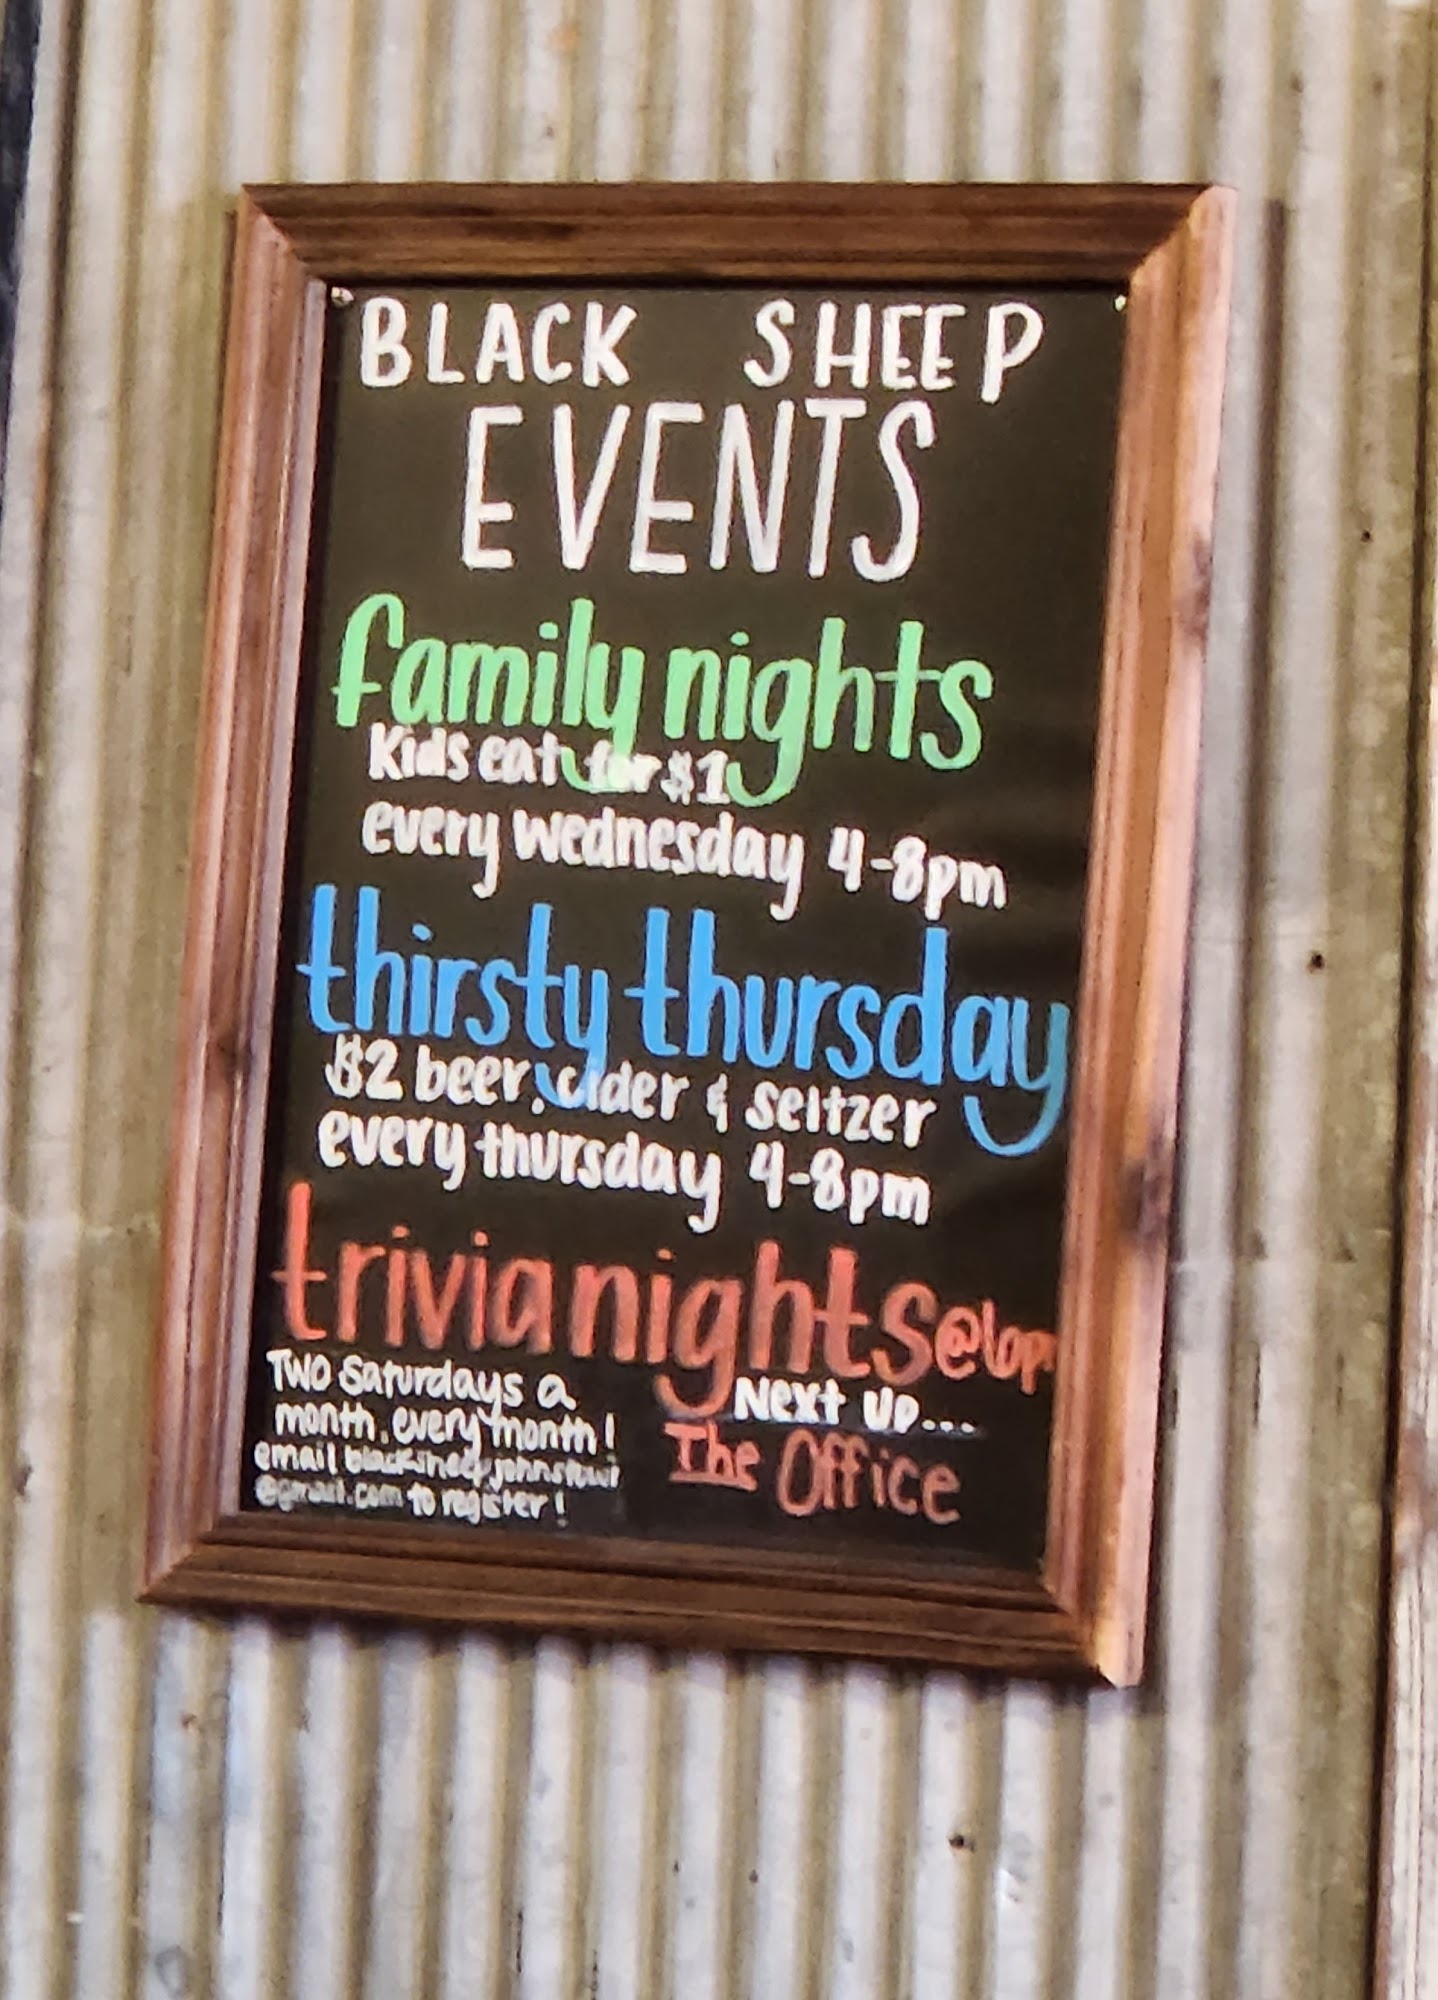 BLACK SHEEP
EVENTS
family nights
Kids eat for $1
every Wednesday 4-8pm
thirsty thursday
$2 beer, cider & seltzer
every thursday 4-8pm
trivia nights @6pm
Two Saturdays a
month, every month!
email
@gmail.com to register!
Next Up...
The Office